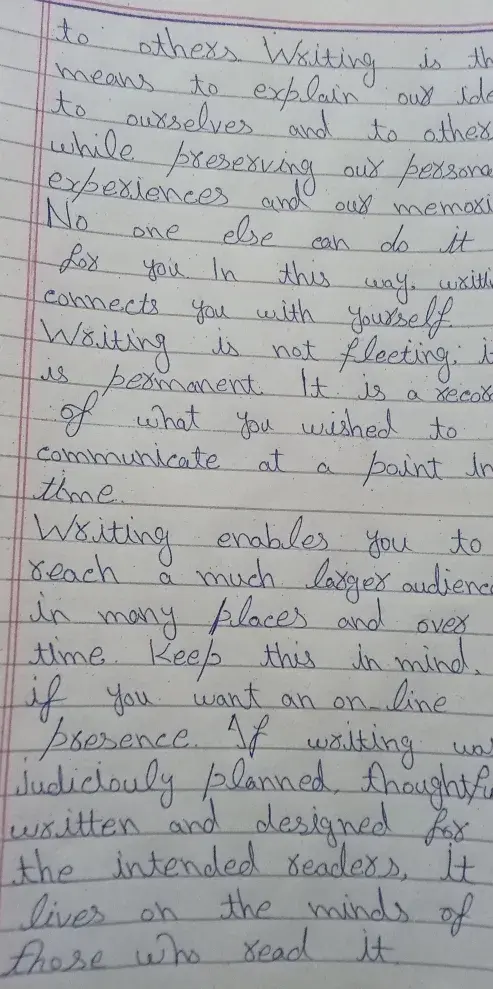 to others. Writing is th
means to explain our ide
to ourselves and to other
while preserving our persona
experiences and our memori
No one else can do it
for you In this way, writi
connects you with yourself.
Writing is not fleeting, i
is permanent. It is a recor
of what you wished to
communicate at a point in
time.
Writing enables you to
reach a much larger audienc
in many places and over
time. Keep this in mind,
if you want an on-line
presence. If writing wa
judiciouly planned, thoughtfu
written and designed for
the intended readers, it
lives on the minds of
those who read it.